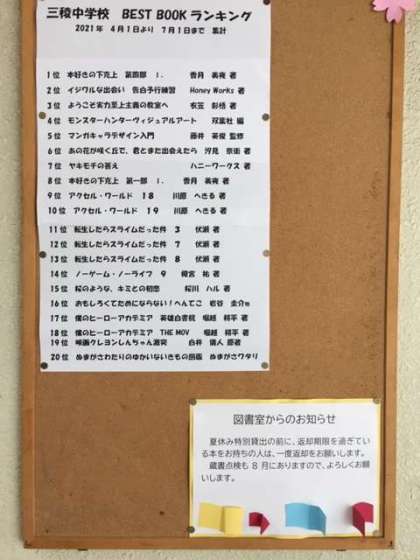 三稜中学校 BEST BOOK ランキング
2021年 4月1日より 7月1日まで 集計
1位 本好きの下克上 第四部 1. 香月 美夜 著
2位 イジワルな出会い 告白予行練習 Honey Works 著
3位 ようこそ実力至上主義の教室へ 衣笠 彰梧 著
4位 モンスターハンターヴィジュアルアート 双葉社 編
5位 マンガキャラデザイン入門 藤井 英俊 監修
6位 あの花が咲く丘で、君とまた出会えたら 汐見 夏衛 著
7位 ヤキモチの答え ハニーワークス 著
8位 本好きの下克上 第一部 1. 香月 美夜 著
9位 アクセル・ワールド 18 川原 へきる 著
10位 アクセル・ワールド 19 川原 へきる 著
11位 転生したらスライムだった件 3 伏瀬 著
12位 転生したらスライムだった件 7 伏瀬 著
13位 転生したらスライムだった件 8 伏瀬 著
14位 ノーゲーム・ノーライフ 9 榎宮 祐 著
15位 桜のような、キミとの初恋 桜川 ハル 著
16位 おもしろくてためにならない！へんてこ 岩谷 圭介
17位 僕のヒーローアカデミア 英雄白書 堀越 耕平 著
18位 僕のヒーローアカデミア THE MOV 堀越 耕平 著
19位 映画クレヨンしんちゃん激突 臼井 儀人 原著
20位 ぬまがさわたりのゆかいないきもの図鑑 ぬまがさワタリ
図書室からのお知らせ
夏休み特別貸出の前に、返却期限を過ぎてい
る本をお持ちの人は、一度返却をお願いします。
蔵書点検も 8 月にありますので、よろしくお願
いします。